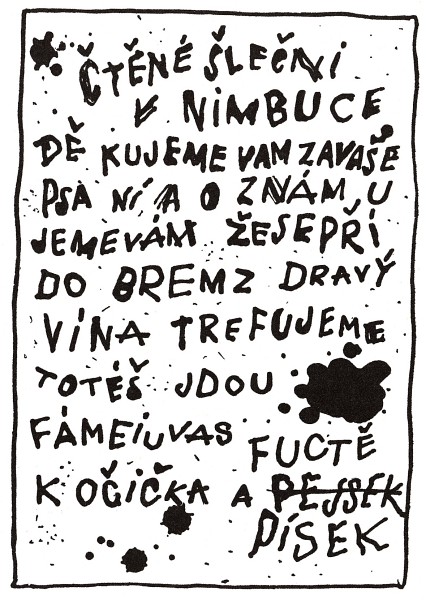 ČTĚNÉ ŠLEČNI
V NIMBUCE
DĚ KUJEME VAM ZAVAŠE
PSA NÍ A O ZNÁM, U
JEMEVÁM ŽESEPŘÍ
DO BREMZ DRAVÝ
VÍNA TREFUJEME
TOTÉŠ JDOU
FÁMEIUVAS FUCTĚ
KOČIČKA A PEJSEK
PÍSEK